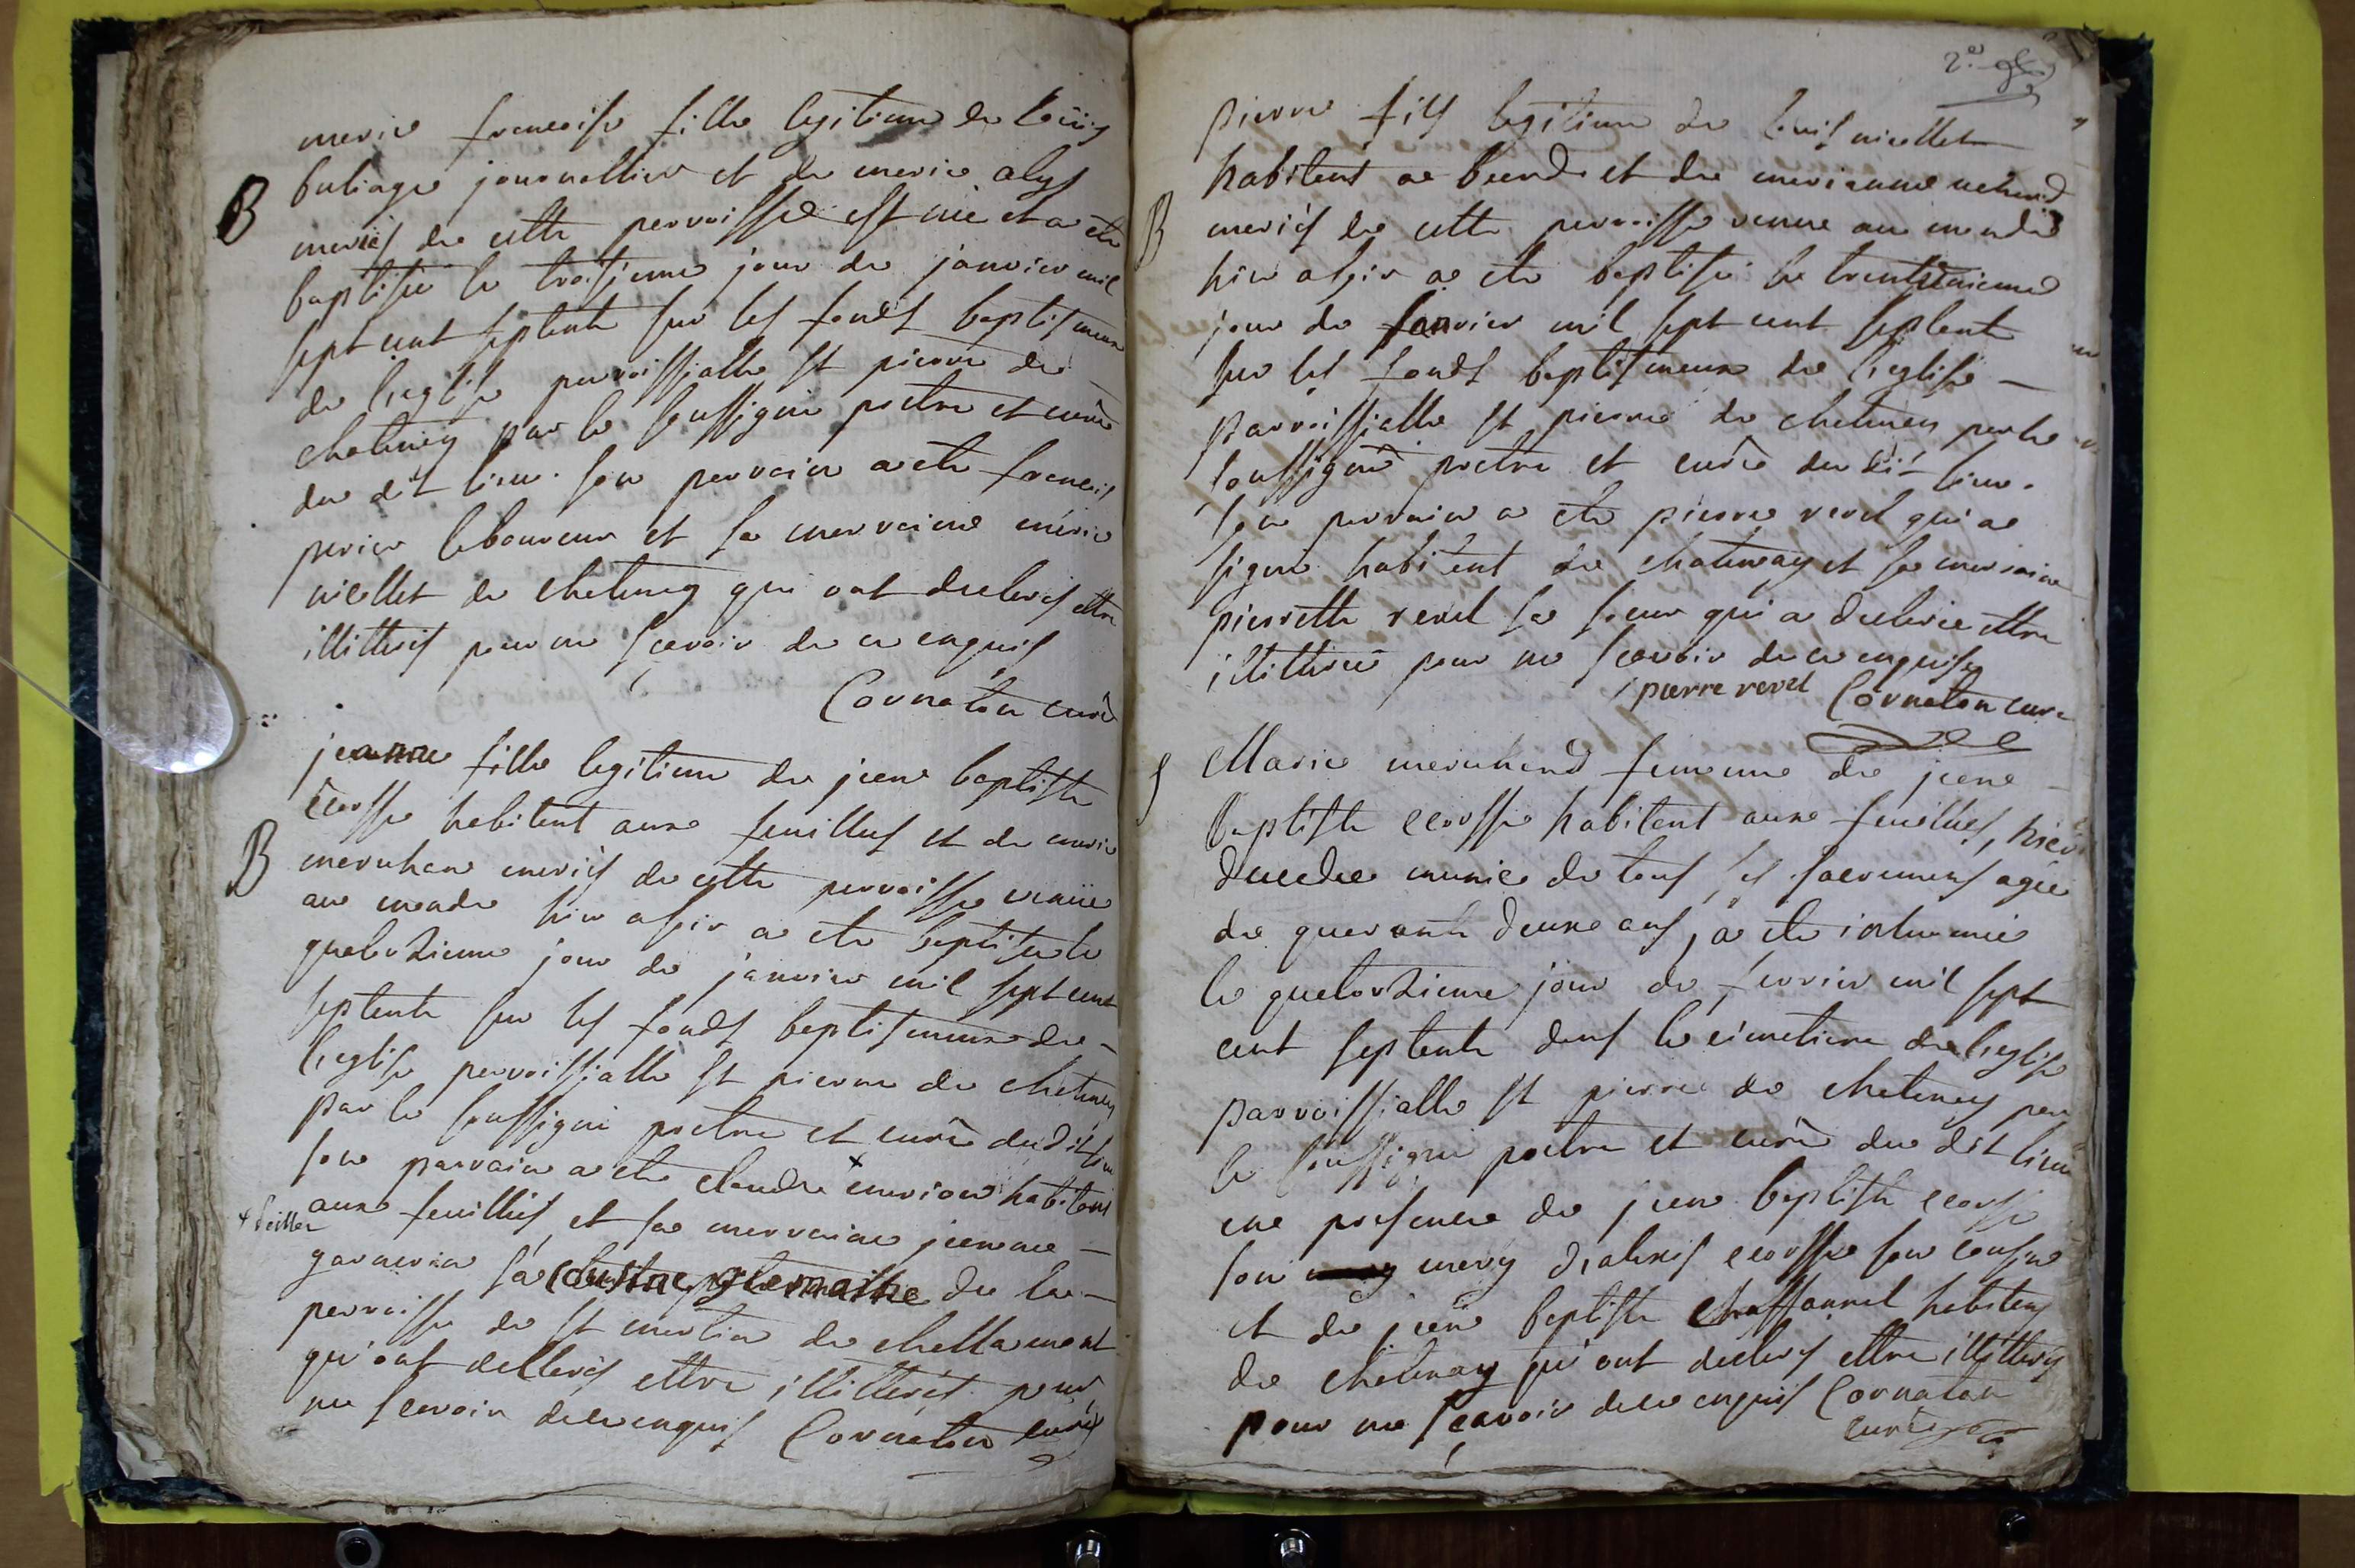 marie francoise fille legitime de loüis
buliage journallier et de marie alys
B
mariés de cette parroisse est née et a ete
baptisée le troisjeme jour de janvier mil
sept cent septente sur les fonds baptismaux
de l'eglise parroissjalle st pierre de
chatenay par le soussigné pretre et curé
du dit lieu. son parrain a ete francois
perier laboureur et sa marraine marie
niellet de chatenay qui ont declarés ettre
illitterés pour ne scavoir de ce enquis
Cornaton curé
jeanne fille legitime de jean baptiste
ecossse habitant aux feuilles et de marie
B
marechand mariés de cette parroisse venüe
au monde hier a ete baptisée le
quatorzieme jour de janvier mil sept cent
septente sur les fonds baptismaux de
l'eglise parroissjalle st pierre de chatenay
par le soussigné pretre et curé du dit lieu
son parrain a ete claude x marion habitant
aux feuilles, et sa marraine jeanne
x
garnerin sa cousine germaine de la
parroisse de st martin de chellamont
qu'ont dellarés ettre illitterés pour
ne scavoir de ce enquis Cornaton curé
2e
pierre fils legitime de louis niellet
habitant a et de marianne
B
mariés de cette parroisse venue au monde
hier a ete baptisé le trentunieme
jour de janvier mil sept cent septente
sur les fonds baptismaux de l'eglise
parroissjalle st pierre de chatenay par le
soussigné pretre et curé du dit lieu.
son parrain a ete pierre revel qui a
signé habitant de chatenay et sa marraine
pierrette revel sa soeur qui a declarée ettre
illitterée pour ne scavoir de ce enquise
pierre revel Cornaton curé
S
Marie marechand femme de jean
baptiste ecossse habitant aux feuilles, hier
decedee munie de tous les sacremens agée
de quarante deux ans, a ete inhumée
le quatorzieme jour de fevrier mil sept
cent septente dans le cimetiere de l'eglise
parroissjalle st pierre de chatenay par
le soussigné pretre et curé du dit lieu
en presence de jean baptiste ecossse
son mary d'alexis ecossse son cousin
et de jean baptiste chaffannel habitans
de chatenay qu'ont declarés ettre illitterés
pour ne scavoir de ce enquis Cornaton
curé